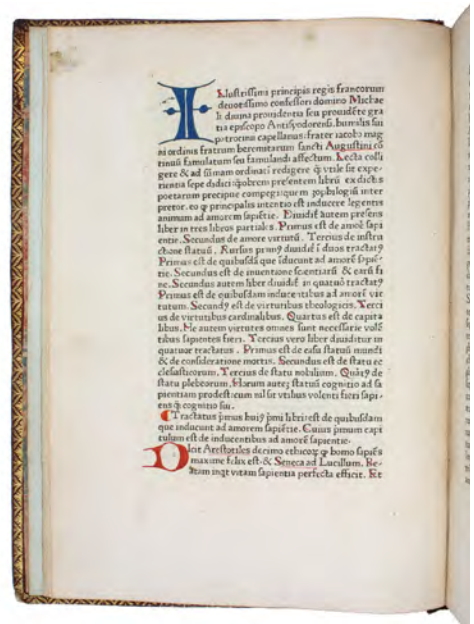 Illustrissimi principis regis francorum
deuotissimo confessori domino Michae
li diuina prouidentia seu prouidēte gra
tia episcopo Antisyodorensi. humilis sui
patrocinia capellanus: frater iacobꝰ mag
ni ordinis fratrum heremitarum sancti Augustini cō
tinuū famulatum seu famulandi affectum. Lecta colli
gere & ad sūmam ordinatī redigere ꝙ vtile sit expe-
rientia sepe didici: presentem librū ex dictis
poetarum precipue compegi: quem inter
pretor. eo ꝙ principalis intentio est inducere legentis
animum ad amorem sapiētie. Diuidit autem presens
liber in tres libros partiales. Primus est de amore sapi
entie. Secundus de amore virtutū. Tercius de instru
ctione statuū. Rursus primꝰ diuidit ī duos tractatꝰ
Primus est de quibusdā que īducunt ad amorē sapiē-
tie. Secundus est de inuentione scientiarū & earū fi
ne. Secundus autem liber diuidit in quatuor tractatꝰ
Primus est de quibusdam inducentibus ad amorē vir
tutum. Secundꝰ est de virtutibus theologicis. Terci
us de virtutibus cardinalibus. Quartus est de capita
libus. Ne autem virtutes omnes sunt necessarie volē
tibus sapientes fieri. Tercius vero liber diuiditur in
quatuor tractatus. Primus est de casu statuū mundi
& de consideratione mortis. Secundus est de statu ec
clesiasticorum. Tercius de statu nobilium. Quartꝰ de
statu plebeorum. Horum autem statuū cognitio ad sa
pientiam prodest: cum nil sit vtibus volenti fieri sapi-
ens ꝙ cognitio sui.
Tractatus pmus huiꝰ pmi libri: est de quibusdam
que inducunt ad amorem sapiētie. Cuius pmum capi
tulum est de inducentibus ad amorē sapientie.
Dicit Arestotiles decimo ethicorꝝ ꝙ homo sapiēs
maxime felix est. & Seneca ad Lucillum. Be-
atam inqt vitam sapientia perfecta efficit. Et